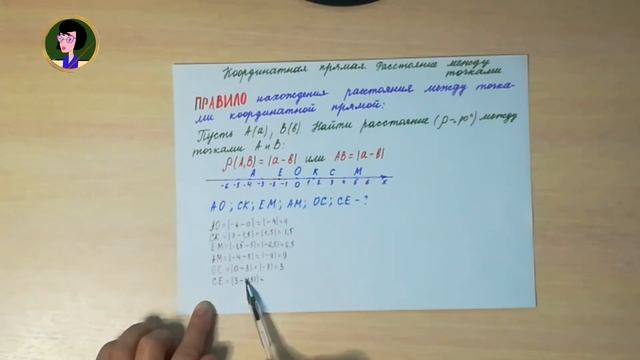 Координатная прямая. Расстояние между
точками
ПРАВИЛО нахождения расстояния между точка-
ми координатной прямой:
Пусть A(a), B(в). Найти расстояние (ρ-"ро") между
точками A и B:
ρ(A,B) = |a-в| или AB = |a-в|
A E O K C M
-6 -5 -4 -3 -2 -1 0 1 2 3 4 5 6 x
AO; CK; EM; AM; OC; CE - ?
AO = |-4-0| = |-4| = 4
CK = |3-1,5| = |1,5| = 1,5
EM = |-1,5-5| = |-6,5| = 6,5
AM = |-4-5| = |-9| = 9
OC = |0-3| = |-3| = 3
CE = |3-